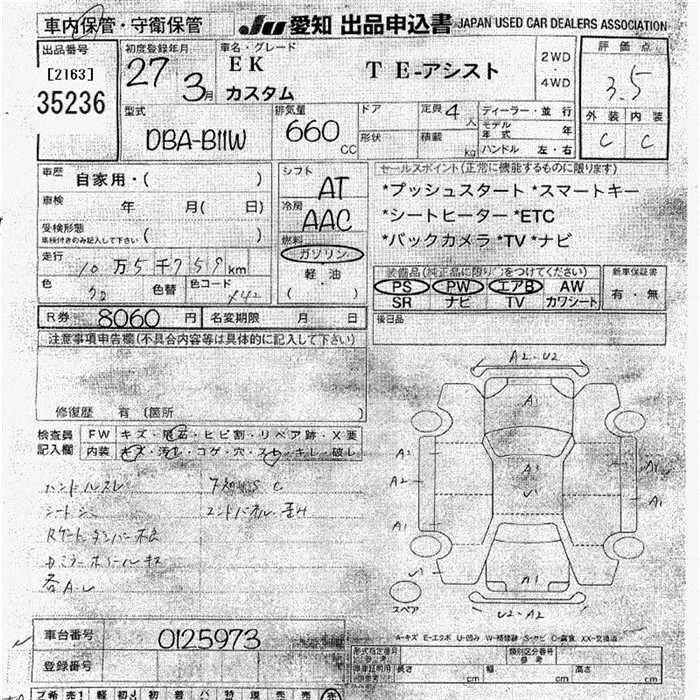 車内保管・守衛保管 JU 愛知 出品申込書 JAPAN USED CAR DEALERS ASSOCIATION
出品番号 初度登録年月 車名・グレード 2WD 評価点
[2163] 27 3月 EK T E-アシスト 4WD 3.5
35236 カスタム
型式 排気量 ドア 定員 4人 ディーラー・並行 外装 内装
DBA-B11W 660cc 形状 積載 kg モデル年式 年 C C
ハンドル 左・右
車歴 自家用・( ) シフト AT セールスポイント(正常に機能するものに限ります)
車検 年 月( 日) 冷房 AAC *プッシュスタート *スマートキー
受検形態 ( ) *シートヒーター *ETC
車検付きのみ記入して下さい 燃料 ガソリン *バックカメラ *TV *ナビ
走行 10万5千759km 軽・油
色 色替 色コード X42 ( )
装備品(純正品に限り○をつけてください) 新車保証書
PS PW エアB AW 有・無
SR ナビ TV カワシート
R券 8060円 名変期限 月 日 後日品
注意事項申告欄(不具合内容等は具体的に記入して下さい)
修復歴 有 (箇所 )
検査員 FW キズ・飛石・ヒビ割・リペア跡・X要
記入欄 内装 キズ・汚レ・コゲ・穴・スレ・キレ・破レ
ハンドルスレ
エンドパネル
各A-U
A2-U2
A1
A2 A3 A1
A2 U1 A1
A1
A1
スペア U2-A2
A-キズ E-エクボ U-凹み W-補修跡 S-サビ C-腐食 XX-交換済
車台番号 0125973
登録番号
型式指定番号 参考 類別区分番号 参考
長さ cm 幅 cm 高さ cm